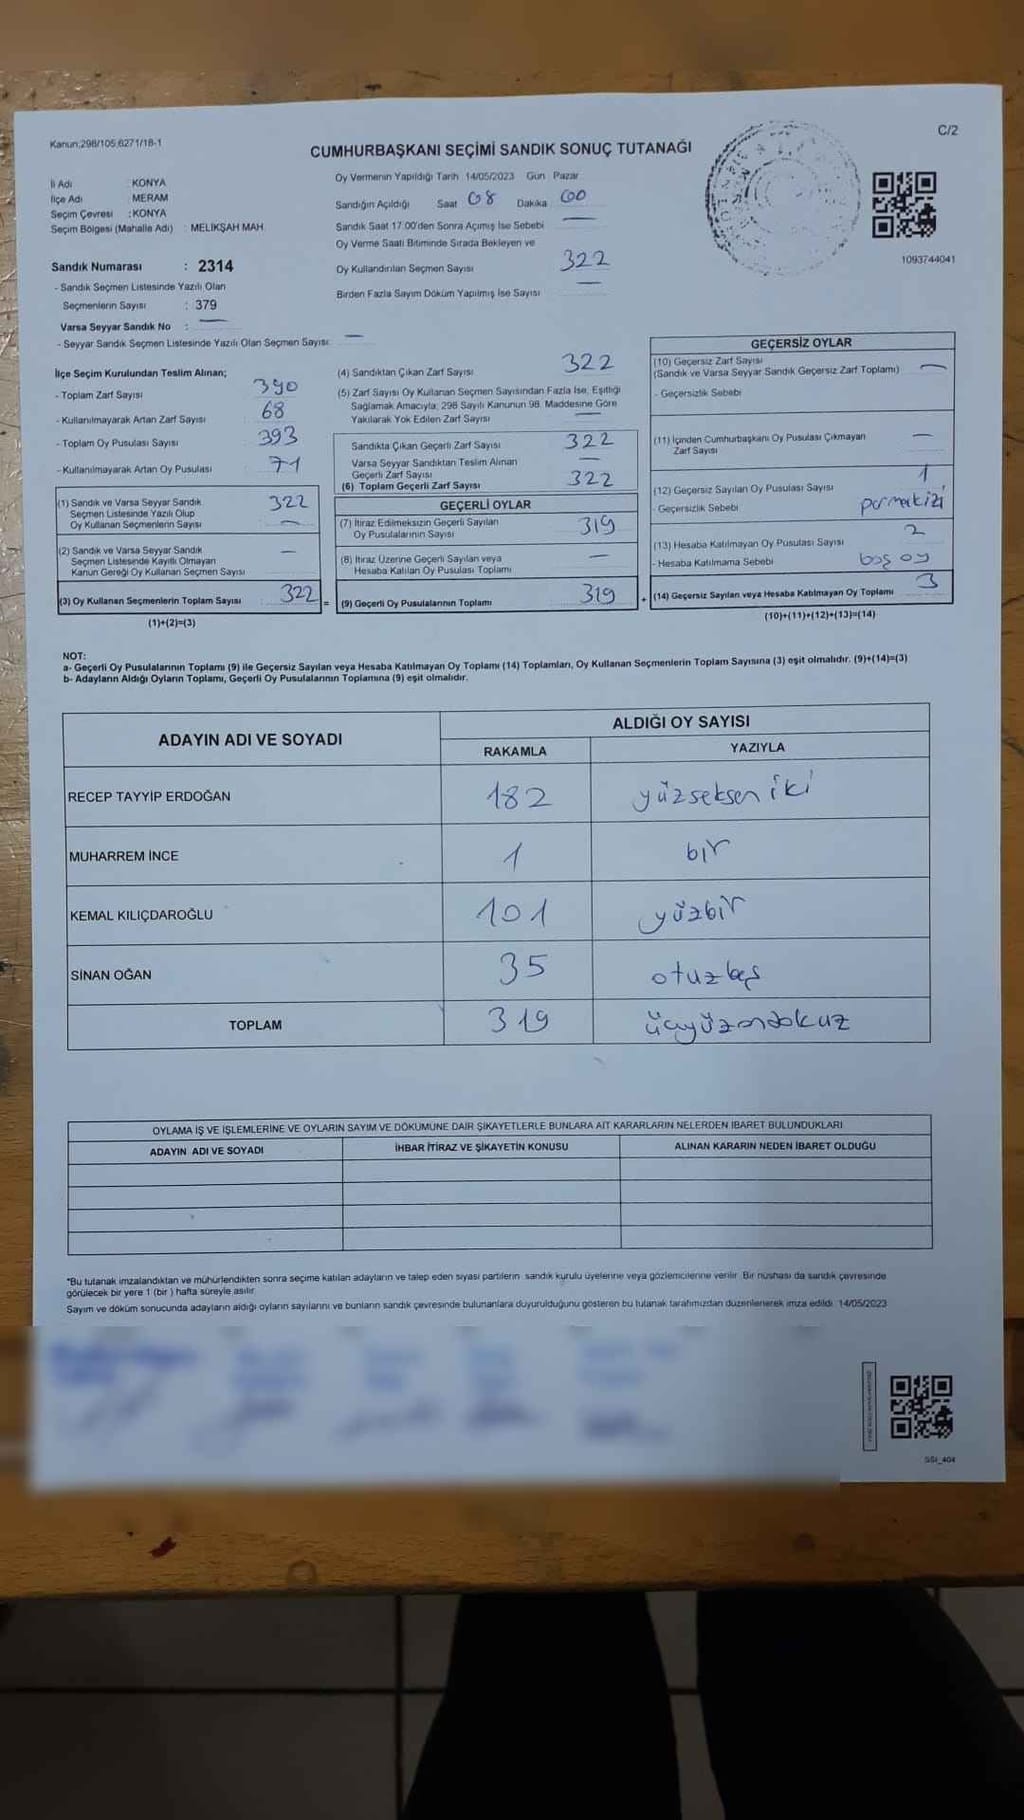 Kanun:298/105,6271/18-1
C/2
CUMHURBAŞKANI SEÇİMİ SANDIK SONUÇ TUTANAĞI
İl Adı : KONYA
İlçe Adı MERAM
Seçim Çevresi : KONYA
Seçim Bölgesi (Mahalle Adı) : MELİKŞAH MAH.
Sandık Numarası : 2314
- Sandık Seçmen Listesinde Yazılı Olan
Seçmenlerin Sayısı : 379
Varsa Seyyar Sandık No : —
- Seyyar Sandık Seçmen Listesinde Yazılı Olan Seçmen Sayısı: —
Oy Vermenin Yapıldığı Tarih 14/05/2023 Gün Pazar
Sandığın Açıldığı Saat 08 Dakika 00
Sandık Saat 17:00'den Sonra Açımış İse Sebebi —
Oy Verme Saati Bitiminde Sırada Bekleyen ve
Oy Kullandırılan Seçmen Sayısı 322
Birden Fazla Sayım Döküm Yapılmış İse Sayısı —
1093744041
İlçe Seçim Kurulundan Teslim Alınan;
- Toplam Zarf Sayısı 390
- Kullanılmayarak Artan Zarf Sayısı 68
- Toplam Oy Pusulası Sayısı 393
- Kullanılmayarak Artan Oy Pusulası 71
(1) Sandık ve Varsa Seyyar Sandık
Seçmen Listesinde Yazılı Olup
Oy Kullanan Seçmenlerin Sayısı 322 —
(2) Sandık ve Varsa Seyyar Sandık
Seçmen Listesinde Kayıtlı Olmayan
Kanun Gereği Oy Kullanan Seçmen Sayısı —
(3) Oy Kullanan Seçmenlerin Toplam Sayısı 322 =
(1)+(2)=(3)
(4) Sandıktan Çıkan Zarf Sayısı 322
(5) Zarf Sayısı Oy Kullanan Seçmen Sayısından Fazla İse, Eşitliği
Sağlamak Amacıyla; 298 Sayılı Kanunun 98. Maddesine Göre
Yakılarak Yok Edilen Zarf Sayısı —
Sandıkta Çıkan Geçerli Zarf Sayısı 322
Varsa Seyyar Sandıktan Teslim Alınan
Geçerli Zarf Sayısı —
(6) Toplam Geçerli Zarf Sayısı 322
GEÇERLİ OYLAR
(7) İtiraz Edilmeksizin Geçerli Sayılan
Oy Pusulalarının Sayısı 319
(8) İtiraz Üzerine Geçerli Sayılan veya
Hesaba Katılan Oy Pusulası Toplamı —
(9) Geçerli Oy Pusulalarının Toplamı 319 +
GEÇERSİZ OYLAR
(10) Geçersiz Zarf Sayısı
(Sandık ve Varsa Seyyar Sandık Geçersiz Zarf Toplamı) —
- Geçersizlik Sebebi
(11) İçinden Cumhurbaşkanı Oy Pusulası Çıkmayan
Zarf Sayısı —
(12) Geçersiz Sayılan Oy Pusulası Sayısı 1
- Geçersizlik Sebebi parmak izi
(13) Hesaba Katılmayan Oy Pusulası Sayısı 2
- Hesaba Katılmama Sebebi boş oy
(14) Geçersiz Sayılan veya Hesaba Katılmayan Oy Toplamı 3
(10)+(11)+(12)+(13)=(14)
NOT:
a- Geçerli Oy Pusulalarının Toplamı (9) ile Geçersiz Sayılan veya Hesaba Katılmayan Oy Toplamı (14) Toplamları, Oy Kullanan Seçmenlerin Toplam Sayısına (3) eşit olmalıdır. (9)+(14)=(3)
b- Adayların Aldığı Oyların Toplamı, Geçerli Oy Pusulalarının Toplamına (9) eşit olmalıdır.
ADAYIN ADI VE SOYADI
ALDIĞI OY SAYISI
RAKAMLA YAZIYLA
RECEP TAYYİP ERDOĞAN 182 yüzseksen iki
MUHARREM İNCE 1 bir
KEMAL KILIÇDAROĞLU 101 yüzbir
SİNAN OĞAN 35 otuzbeş
TOPLAM 319 üçyüzondokuz
OYLAMA İŞ VE İŞLEMLERİNE VE OYLARIN SAYIM VE DÖKÜMÜNE DAİR ŞİKAYETLERLE BUNLARA AİT KARARLARIN NELERDEN İBARET BULUNDUKLARI
ADAYIN ADI VE SOYADI İHBAR İTİRAZ VE ŞİKAYETİN KONUSU ALINAN KARARIN NEDEN İBARET OLDUĞU
*Bu tutanak imzalandıktan ve mühürlendikten sonra seçime katılan adayların ve talep eden siyasi partilerin sandık kurulu üyelerine veya gözlemcilerine verilir. Bir nüshası da sandık çevresinde
görülecek bir yere 1 (bir ) hafta süreyle asılır.
Sayım ve döküm sonucunda adayların aldığı oyların sayılarını ve bunların sandık çevresinde bulunanlara duyurulduğunu gösteren bu tutanak tarafımızdan düzenlenerek imza edildi. 14/05/2023
SSI_404